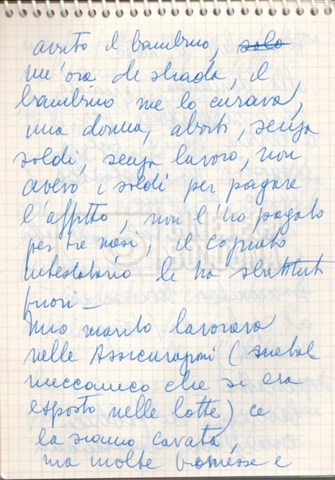 avuto il bambino, solo
un'ora di strada, il
bambino me lo curava
una donna, aborti, senza
soldi, senza lavoro, non
avevo i soldi per pagare
l'affitto, non l'ho pagato
per tre mesi, il cognato
intestatario li ha sbattuti
fuori –
Mio marito lavorava
nelle Assicurazioni (
meccanico che si era
esposto nelle lotte) ce
la siamo cavata,
ma molte e